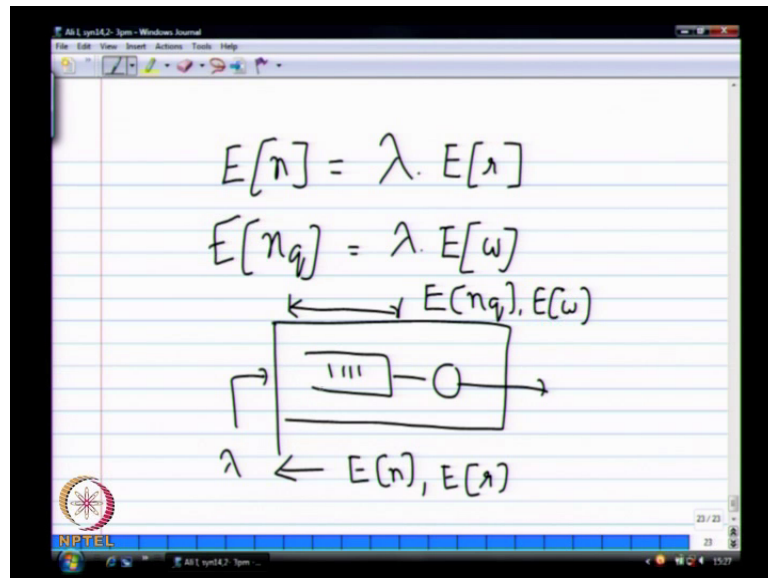 Ali I, syn14,2- 3pm - Windows Journal
File Edit View Insert Actions Tools Help
E[n] = λ. E[r]
E[nq] = λ. E[w]
E(nq), E(w)
λ
E(n), E(r)
23 / 23
23
NPTEL
Ali I, syn14,2- 3pm -...
15:27